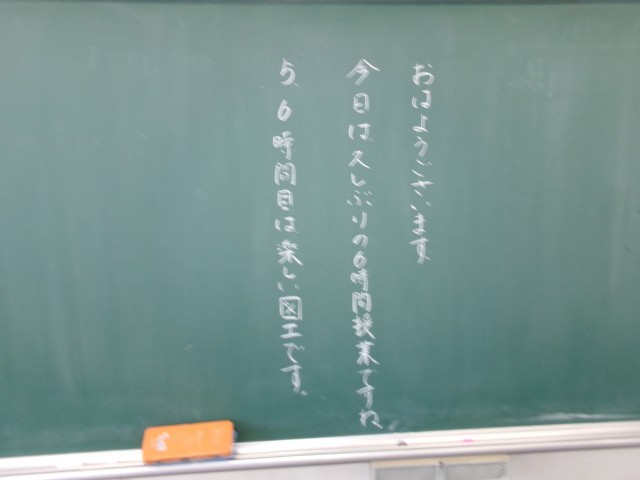 おはようございます。
今日は、久しぶりの6時間授業ですね。
5、6時間目は楽しい図工です。